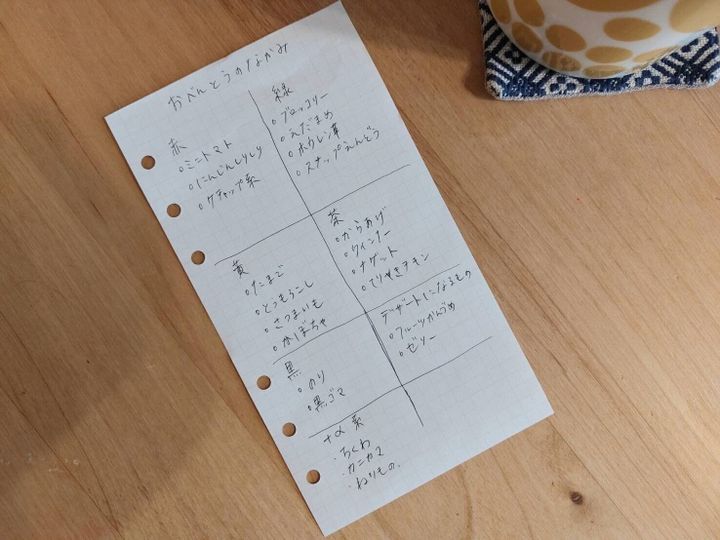 おべんとうのなかみ
赤
○ミニトマト
○にんじんしりしり
○ケチャップ系
緑
○ブロッコリー
○えだまめ
○ホウレン草
○スナップえんどう
黄
○たまご
○とうもろこし
○さつまいも
○かぼちゃ
茶
○からあげ
○ウィンナー
○ナゲット
○てりやきチキン
黒
○のり
○黒ゴマ
デザートになるもの
○フルーツかんづめ
○ゼリー
+α系
・ちくわ
・カニカマ
・ねりもの